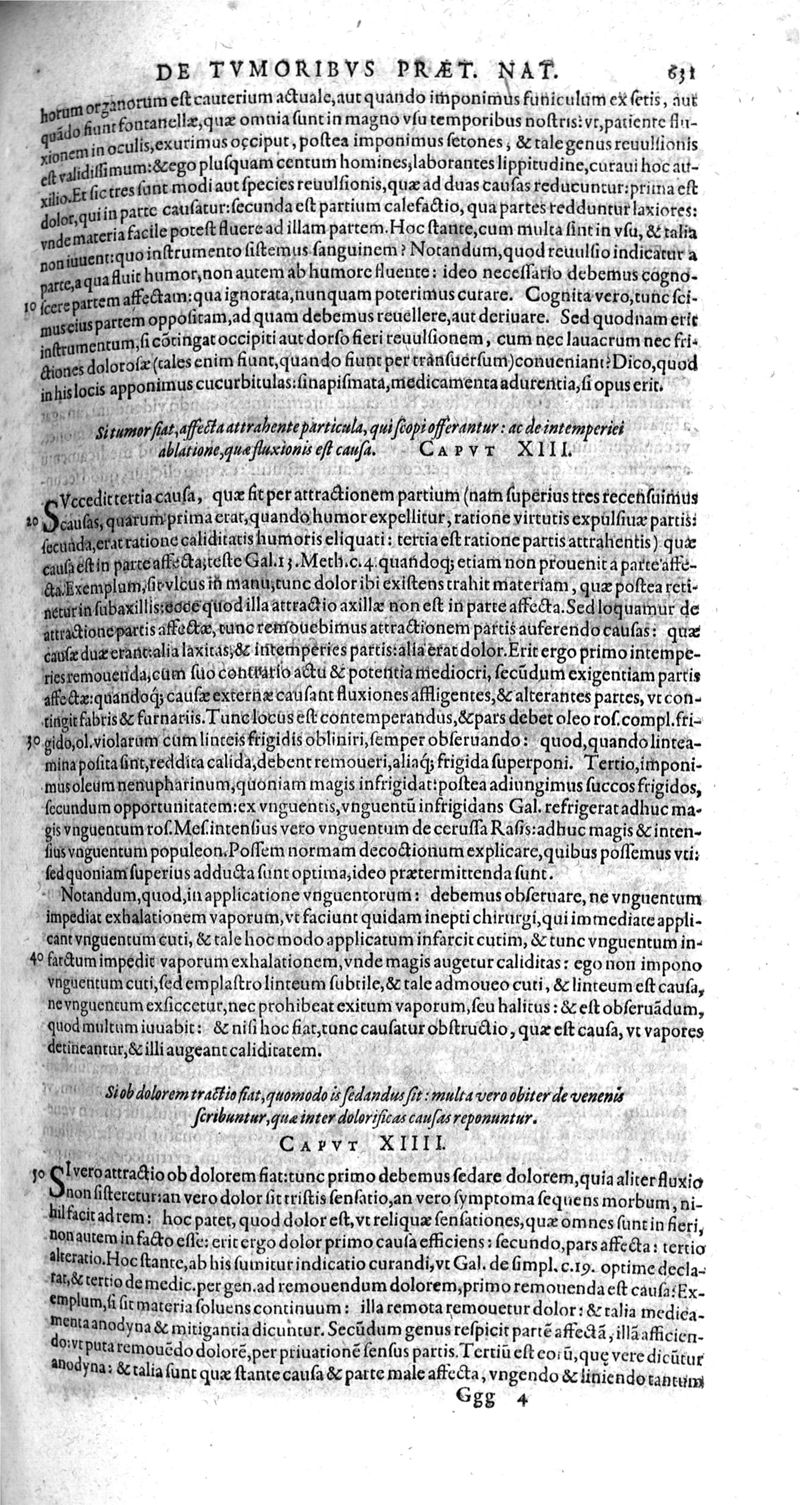 DE TVMORIBVS PRÆT. NAT. 631
horum organorum eſt cauterium actuale, aut quando imponimus funiculum ex ſetis, aut
quãdo fiunt fontanellæ, quæ omnia ſunt in magno vſu temporibus noſtris: vt, patiente flu-
xionem in oculis, exurimus occiput, poſtea imponimus ſetones, & tale genus reuulſionis
eſt validiſſimum: & ego pluſquam centum homines, laborantes lippitudine, curaui hoc au-
xilio. Et ſic tres ſunt modi aut ſpecies reuulſionis, quæ ad duas cauſas reducuntur: prima eſt
dolor, qui in parte cauſatur: ſecunda eſt partium calefactio, qua partes redduntur laxiores:
vnde materia facile poteſt fluere ad illam partem. Hoc ſtante, cum multa ſint in vſu, & talia
non iuuent: quo inſtrumento ſiſtemus ſanguinem? Notandum, quod reuulſio indicatur a
parte, a qua fluit humor, non autem ab humore fluente: ideo neceſſario debemus cogno-
10 ſcere partem affectam: qua ignorata, nunquam poterimus curare. Cognita vero, tunc ſci-
mus eius partem oppoſitam, ad quam debemus reuellere, aut deriuare. Sed quodnam erit
inſtrumentum, ſi cõtingat occipiti aut dorſo fieri reuulſionem, cum nec lauacrum nec fri-
ctiones doloroſæ (tales enim fiunt, quando fiunt per tranſuerſum) conueniant? Dico, quod
in his locis apponimus cucurbitulas: ſinapiſmata, medicamenta adurentia, ſi opus erit.
Si tumor fiat, affecta attrahente particula, qui ſcopi offerantur: ac de intemperiei
ablatione, quæ fluxionis eſt cauſa. CAPVT XIII.
SVccedit tertia cauſa, quæ ſit per attractionem partium (nam ſuperius tres recenſuimus
20 cauſas, quarum prima erat, quando humor expellitur, ratione virtutis expulſiuæ partis:
ſecunda, erat ratione caliditatis humoris eliquati: tertia eſt ratione partis attrahentis) quæ
cauſa eſt in parte affecta; teſte Gal. 13. Meth. c. 4. quandoq; etiam non prouenit a parte affe-
cta. Exemplum, ſit vlcus in manu, tunc dolor ibi exiſtens trahit materiam, quæ poſtea reti-
netur in ſubaxillis: ecce quod illa attractio axillæ non eſt in parte affecta. Sed loquamur de
attractione partis affectæ, tunc remouebimus attractionem partis auferendo cauſas: quæ
cauſæ duæ erant: alia laxitas, & intemperies partis: alia erat dolor. Erit ergo primo intempe-
ries remouenda, cum ſuo contrario actu & potentia mediocri, ſecũdum exigentiam partis
affectæ: quandoq; cauſæ externæ cauſant fluxiones affligentes, & alterantes partes, vt con-
tingit fabris & furnariis. Tunc locus eſt contemperandus, & pars debet oleo roſ. compl. fri-
30 gido, ol. violarum cum linteis frigidis obliniri, ſemper obſeruando: quod, quando lintea-
mina poſita ſint, reddita calida, debent remoueri, aliaq; frigida ſuperponi. Tertio, imponi-
mus oleum nenupharinum, quoniam magis infrigidat: poſtea adiungimus ſuccos frigidos,
ſecundum opportunitatem: ex vnguentis, vnguentũ infrigidans Gal. refrigerat adhuc ma-
gis vnguentum roſ. Meſ. intenſius vero vnguentum de ceruſſa Raſis: adhuc magis & inten-
ſius vnguentum populeon. Poſſem normam decoctionum explicare, quibus poſſemus vti:
ſed quoniam ſuperius adducta ſunt optima, ideo prætermittenda ſunt.
Notandum, quod, in applicatione vnguentorum: debemus obſeruare, ne vnguentum
impediat exhalationem vaporum, vt faciunt quidam inepti chirurgi, qui immediate appli-
cant vnguentum cuti, & tale hoc modo applicatum infarcit cutim, & tunc vnguentum in-
40 farctum impedit vaporum exhalationem, vnde magis augetur caliditas: ego non impono
vnguentum cuti, ſed emplaſtro linteum ſubtile, & tale admoueo cuti, & linteum eſt cauſa,
ne vnguentum exſiccetur, nec prohibeat exitum vaporum, ſeu halitus: & eſt obſeruãdum,
quod multum iuuabit: & niſi hoc fiat, tunc cauſatur obſtructio, quæ eſt cauſa, vt vapores
detineantur, & illi augeant caliditatem.
Si ob dolorem tractio fiat, quomodo is ſedandus ſit: multa vero obiter de venenis
ſcribuntur, quæ inter dolorificas cauſas reponuntur.
CAPVT XIIII.
50 SI vero attractio ob dolorem fiat: tunc primo debemus ſedare dolorem, quia aliter fluxio
non ſiſteretur: an vero dolor ſit triſtis ſenſatio, an vero ſymptoma ſequens morbum, ni-
hil facit ad rem: hoc patet, quod dolor eſt, vt reliquæ ſenſationes, quæ omnes ſunt in fieri,
non autem in facto eſſe: erit ergo dolor primo cauſa efficiens: ſecundo, pars affecta: tertio
alteratio. Hoc ſtante, ab his ſumitur indicatio curandi, vt Gal. de ſimpl. c. 19. optime decla-
rat, & tertio de medic. per gen. ad remouendum dolorem, primo remouenda eſt cauſa: Ex-
emplum, ſi ſit materia ſoluens continuum: illa remota remouetur dolor: & talia medica-
menta anodyna & mitigantia dicuntur. Secũdum genus reſpicit partẽ affectã, illã afficien-
do: vt puta remouẽdo dolorẽ, per priuationẽ ſenſus partis. Tertiũ eſt eorũ, quę vere dicũtur
anodyna: & talia ſunt quæ ſtante cauſa & parte male affecta, vngendo & liniendo tantum
Ggg 4